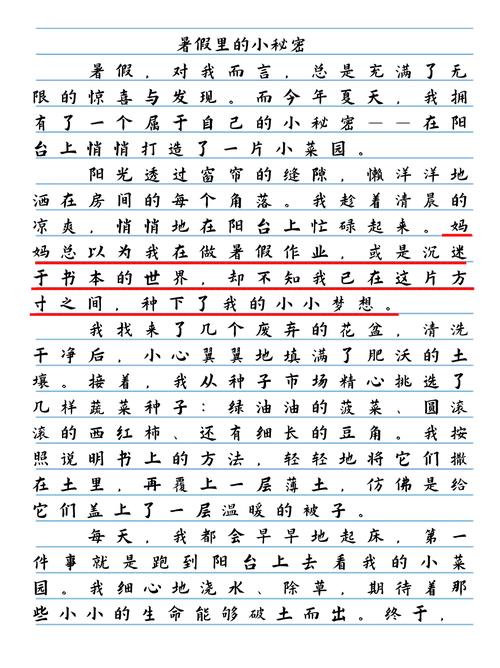 暑假里的小秘密
暑假，对我而言，总是充满了无
限的惊喜与发现。而今年夏天，我拥
有了一个属于自己的小秘密——在阳
台上悄悄打造了一片小菜园。
阳光透过窗帘的缝隙，懒洋洋地
洒在房间的每个角落。我趁着清晨的
凉爽，悄悄地在阳台上忙碌起来。妈
妈总以为我在做暑假作业，或是沉迷
于书本的世界，却不知我已在这片方
寸之间，种下了我的小小梦想。
我找来了几个废弃的花盆，清洗
干净后，小心翼翼地填满了肥沃的土
壤。接着，我从种子市场精心挑选了
几样蔬菜种子：绿油油的菠菜、圆滚
滚的西红柿、还有细长的豆角。我按
照说明书上的方法，轻轻地将它们撒
在土里，再覆上一层薄土，仿佛是给
它们盖上了一层温暖的被子。
每天，我都会早早地起床，第一
件事就是跑到阳台上去看我的小菜
园。我细心地浇水、除草，期待着那
些小小的生命能够破土而出。终于，